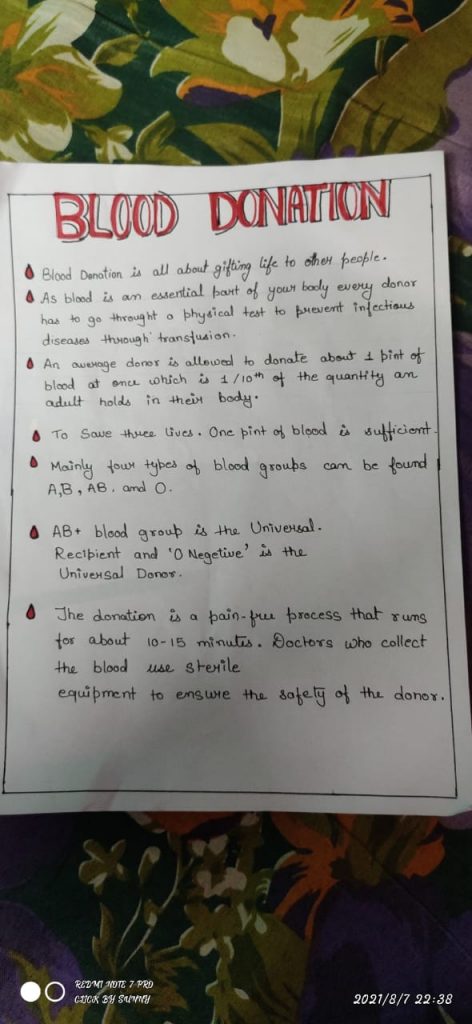 BLOOD DONATION
Blood Donation is all about gifting life to other people.
As blood is an essential part of your body every donor
has to go throught a physical test to prevent infectious
diseases through transfusion.
An average donor is allowed to donate about 1 pint of
blood at once which is 1/10th of the quantity an
adult holds in their body.
To Save three lives. One pint of blood is sufficient.
Mainly four types of blood groups can be found
A,B, AB. and O.
AB+ blood group is the Universal.
Recipient and 'O Negetive' is the
Universal Donor.
The donation is a pain-free process that runs
for about 10-15 minutes. Doctors who collect
the blood use sterile
equipment to ensure the safety of the donor.
REDMI NOTE 7 PRO
CLICK BY SUNNY
2021/8/7 22:38